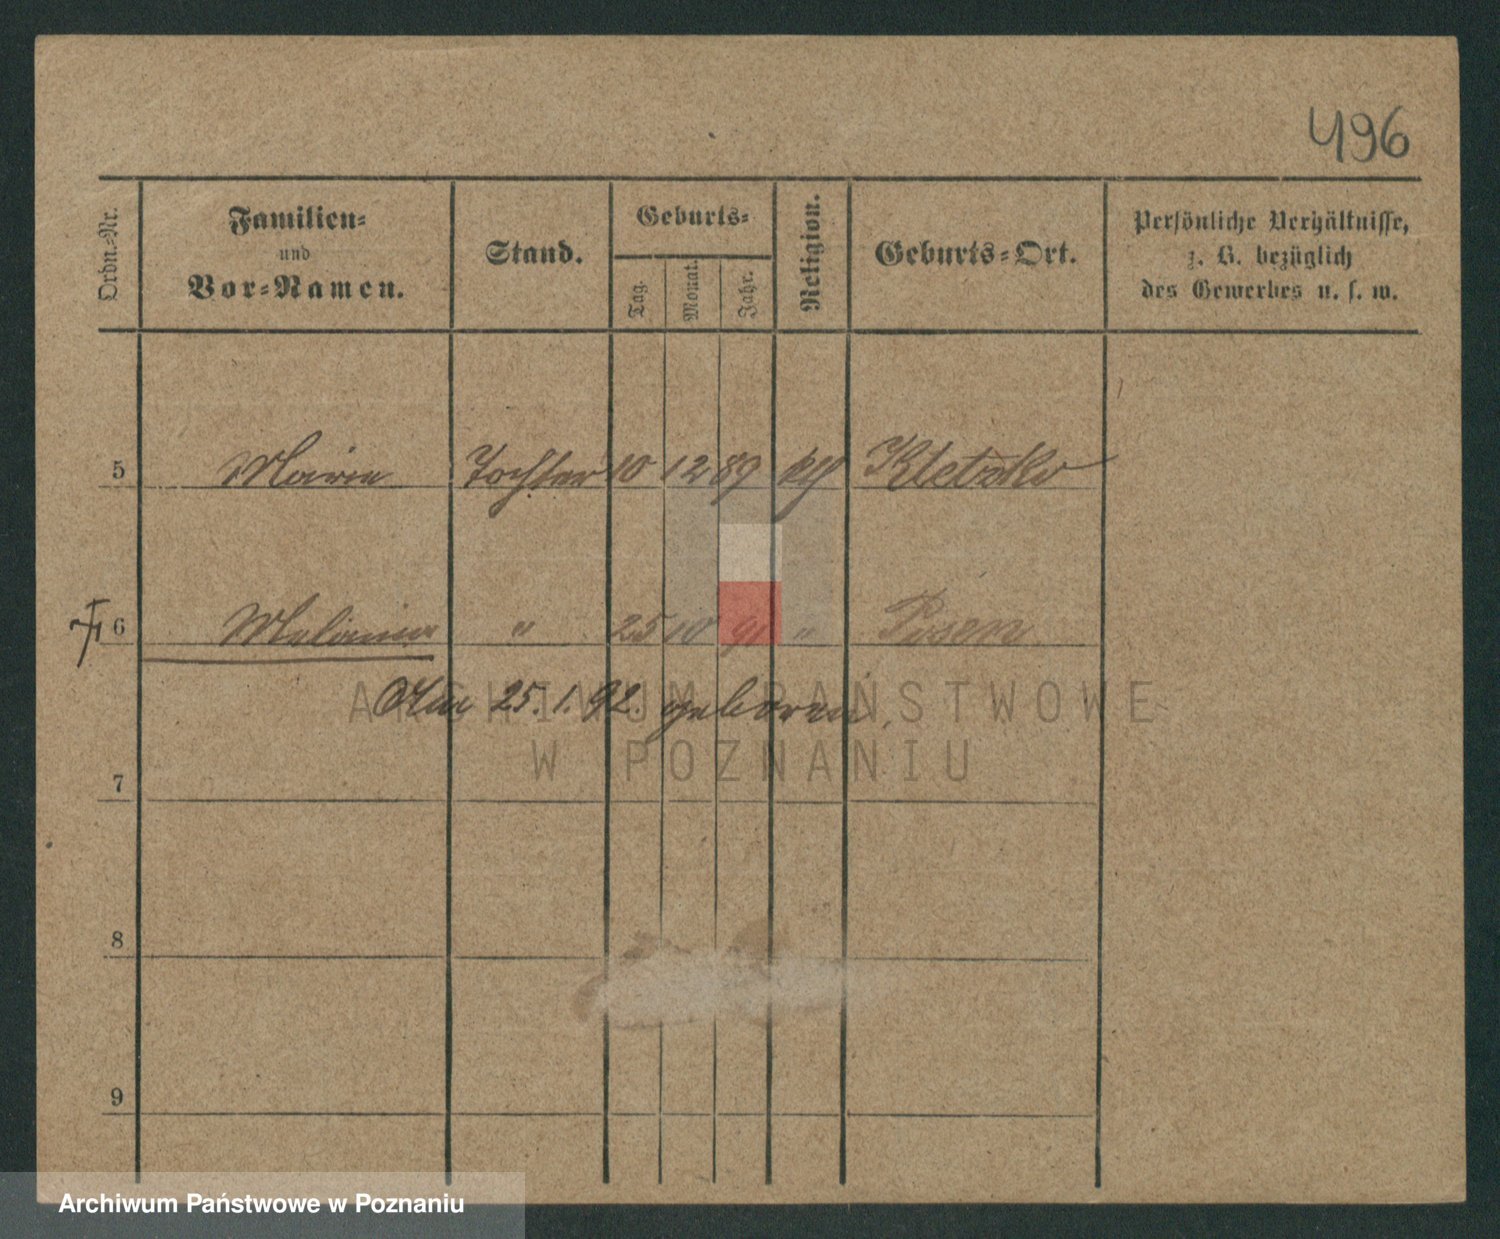 496
Ordn.-Nr. Familien- und Vor-Namen. Stand. Geburts- Tag. Monat. Jahr. Religion. Geburts-Ort. Persönliche Verhältnisse, z. B. bezüglich des Gewerbes u. s. w.
5 Marie Tochter 10 12 89 kth Kletzko
6 Melania " 25 10 91 " Posen
Am 25.1.92. geboren.
7
8
9
ARCHIWUM PAŃSTWOWE
W POZNANIU
Archiwum Państwowe w Poznaniu